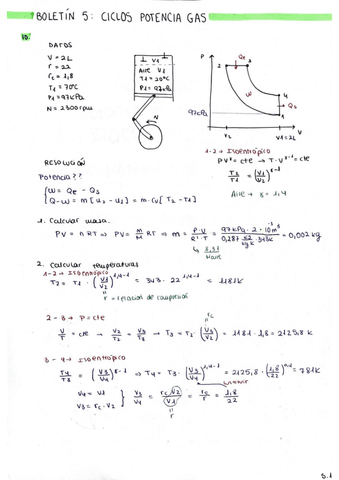 BOLETÍN 5: CICLOS POTENCIA GAS
10.
DATOS
V = 2L
r = 22
rc = 1,8
T1 = 70°C
P1 = 97kPa
N = 2300 rpm
V1
AIRE V1
T1 = 20°C
P1 = 97kPa
N
P
2
QE
3
W
4
QS
1
97kPa
V2
V1 = 2L
V
1-2 → Isoentrópico
PV^γ = cte → T·V^γ-1 = cte
T2/T1 = (V1/V2)^γ-1
Aire → γ = 1,4
RESOLUCIÓN
Potencia??
W = QE - QS
Q - W = m[u2 - u1] = m·Cv[T2 - T1]
1. Calcular masa.
PV = nRT → PV = m/M RT → m = P·V/R'·T = 97kPa·2·10^-3 m^3/0,287 kJ/kg K·343K = 0,002 kg
2. Calcular temperaturas
1-2 → ISOENTRÓPICO
T2 = T1·(V1/V2)^1,4-1 = 343·22^1,4-1 = 1181K
r = relación de compresión
2-3 → P = cte
rc
V/T = cte → V2/T2 = V3/T3 → T3 = T2·(V3/V2) = 1181·1,8 = 2125,8K
3-4 → Isoentrópico
T4/T3 = (V3/V4)^γ-1 → T4 = T3·(V3/V4)^1,4-1 = 2125,8·(1,8/22)^0,4 = 781K
V4 = V1
V3 = rc·V2
V3/V4 = rc·V2/V1 = rc/r = 1,8/22
r
5.1